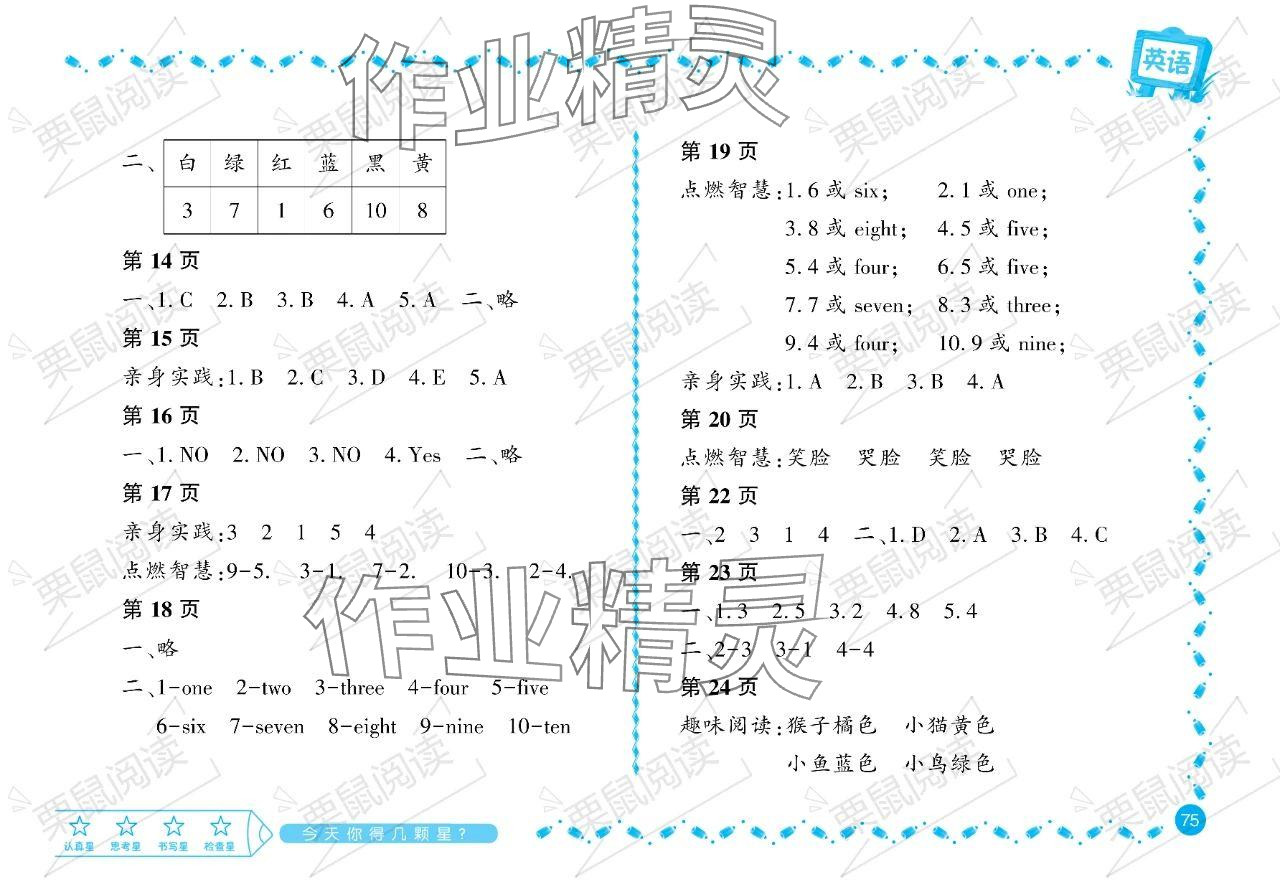 英语
二、
白 绿 红 蓝 黑 黄
3 7 1 6 10 8
第 14 页
一、1. C 2. B 3. B 4. A 5. A 二、略
第 15 页
亲身实践:1. B 2. C 3. D 4. E 5. A
第 16 页
一、1. NO 2. NO 3. NO 4. Yes 二、略
第 17 页
亲身实践:3 2 1 5 4
点燃智慧:9-5. 3-1. 7-2. 10-3. 2-4.
第 18 页
一、略
二、1-one 2-two 3-three 4-four 5-five
6-six 7-seven 8-eight 9-nine 10-ten
第 19 页
点燃智慧:1. 6 或 six; 2. 1 或 one;
3. 8 或 eight; 4. 5 或 five;
5. 4 或 four; 6. 5 或 five;
7. 7 或 seven; 8. 3 或 three;
9. 4 或 four; 10. 9 或 nine;
亲身实践:1. A 2. B 3. B 4. A
第 20 页
点燃智慧:笑脸 哭脸 笑脸 哭脸
第 22 页
一、2 3 1 4 二、1. D 2. A 3. B 4. C
第 23 页
一、1. 3 2. 5 3. 2 4. 8 5. 4
二、2-3 3-1 4-4
第 24 页
趣味阅读:猴子橘色 小猫黄色
小鱼蓝色 小鸟绿色
认真星 思考星 书写星 检查星
今天你得几颗星?
75
作业精灵
作业精灵
栗鼠阅读